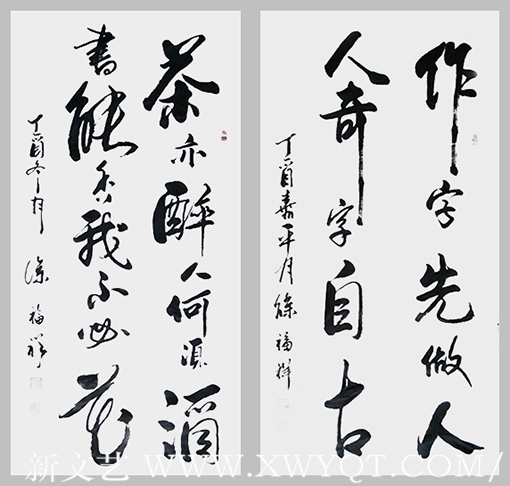 作字先做人
人奇字自古
丁酉嘉平月 徐福祥
茶亦醉人何須酒
書能香我不必花
丁酉冬月 徐福祥
新文艺 WWW.XWYQT.COM/